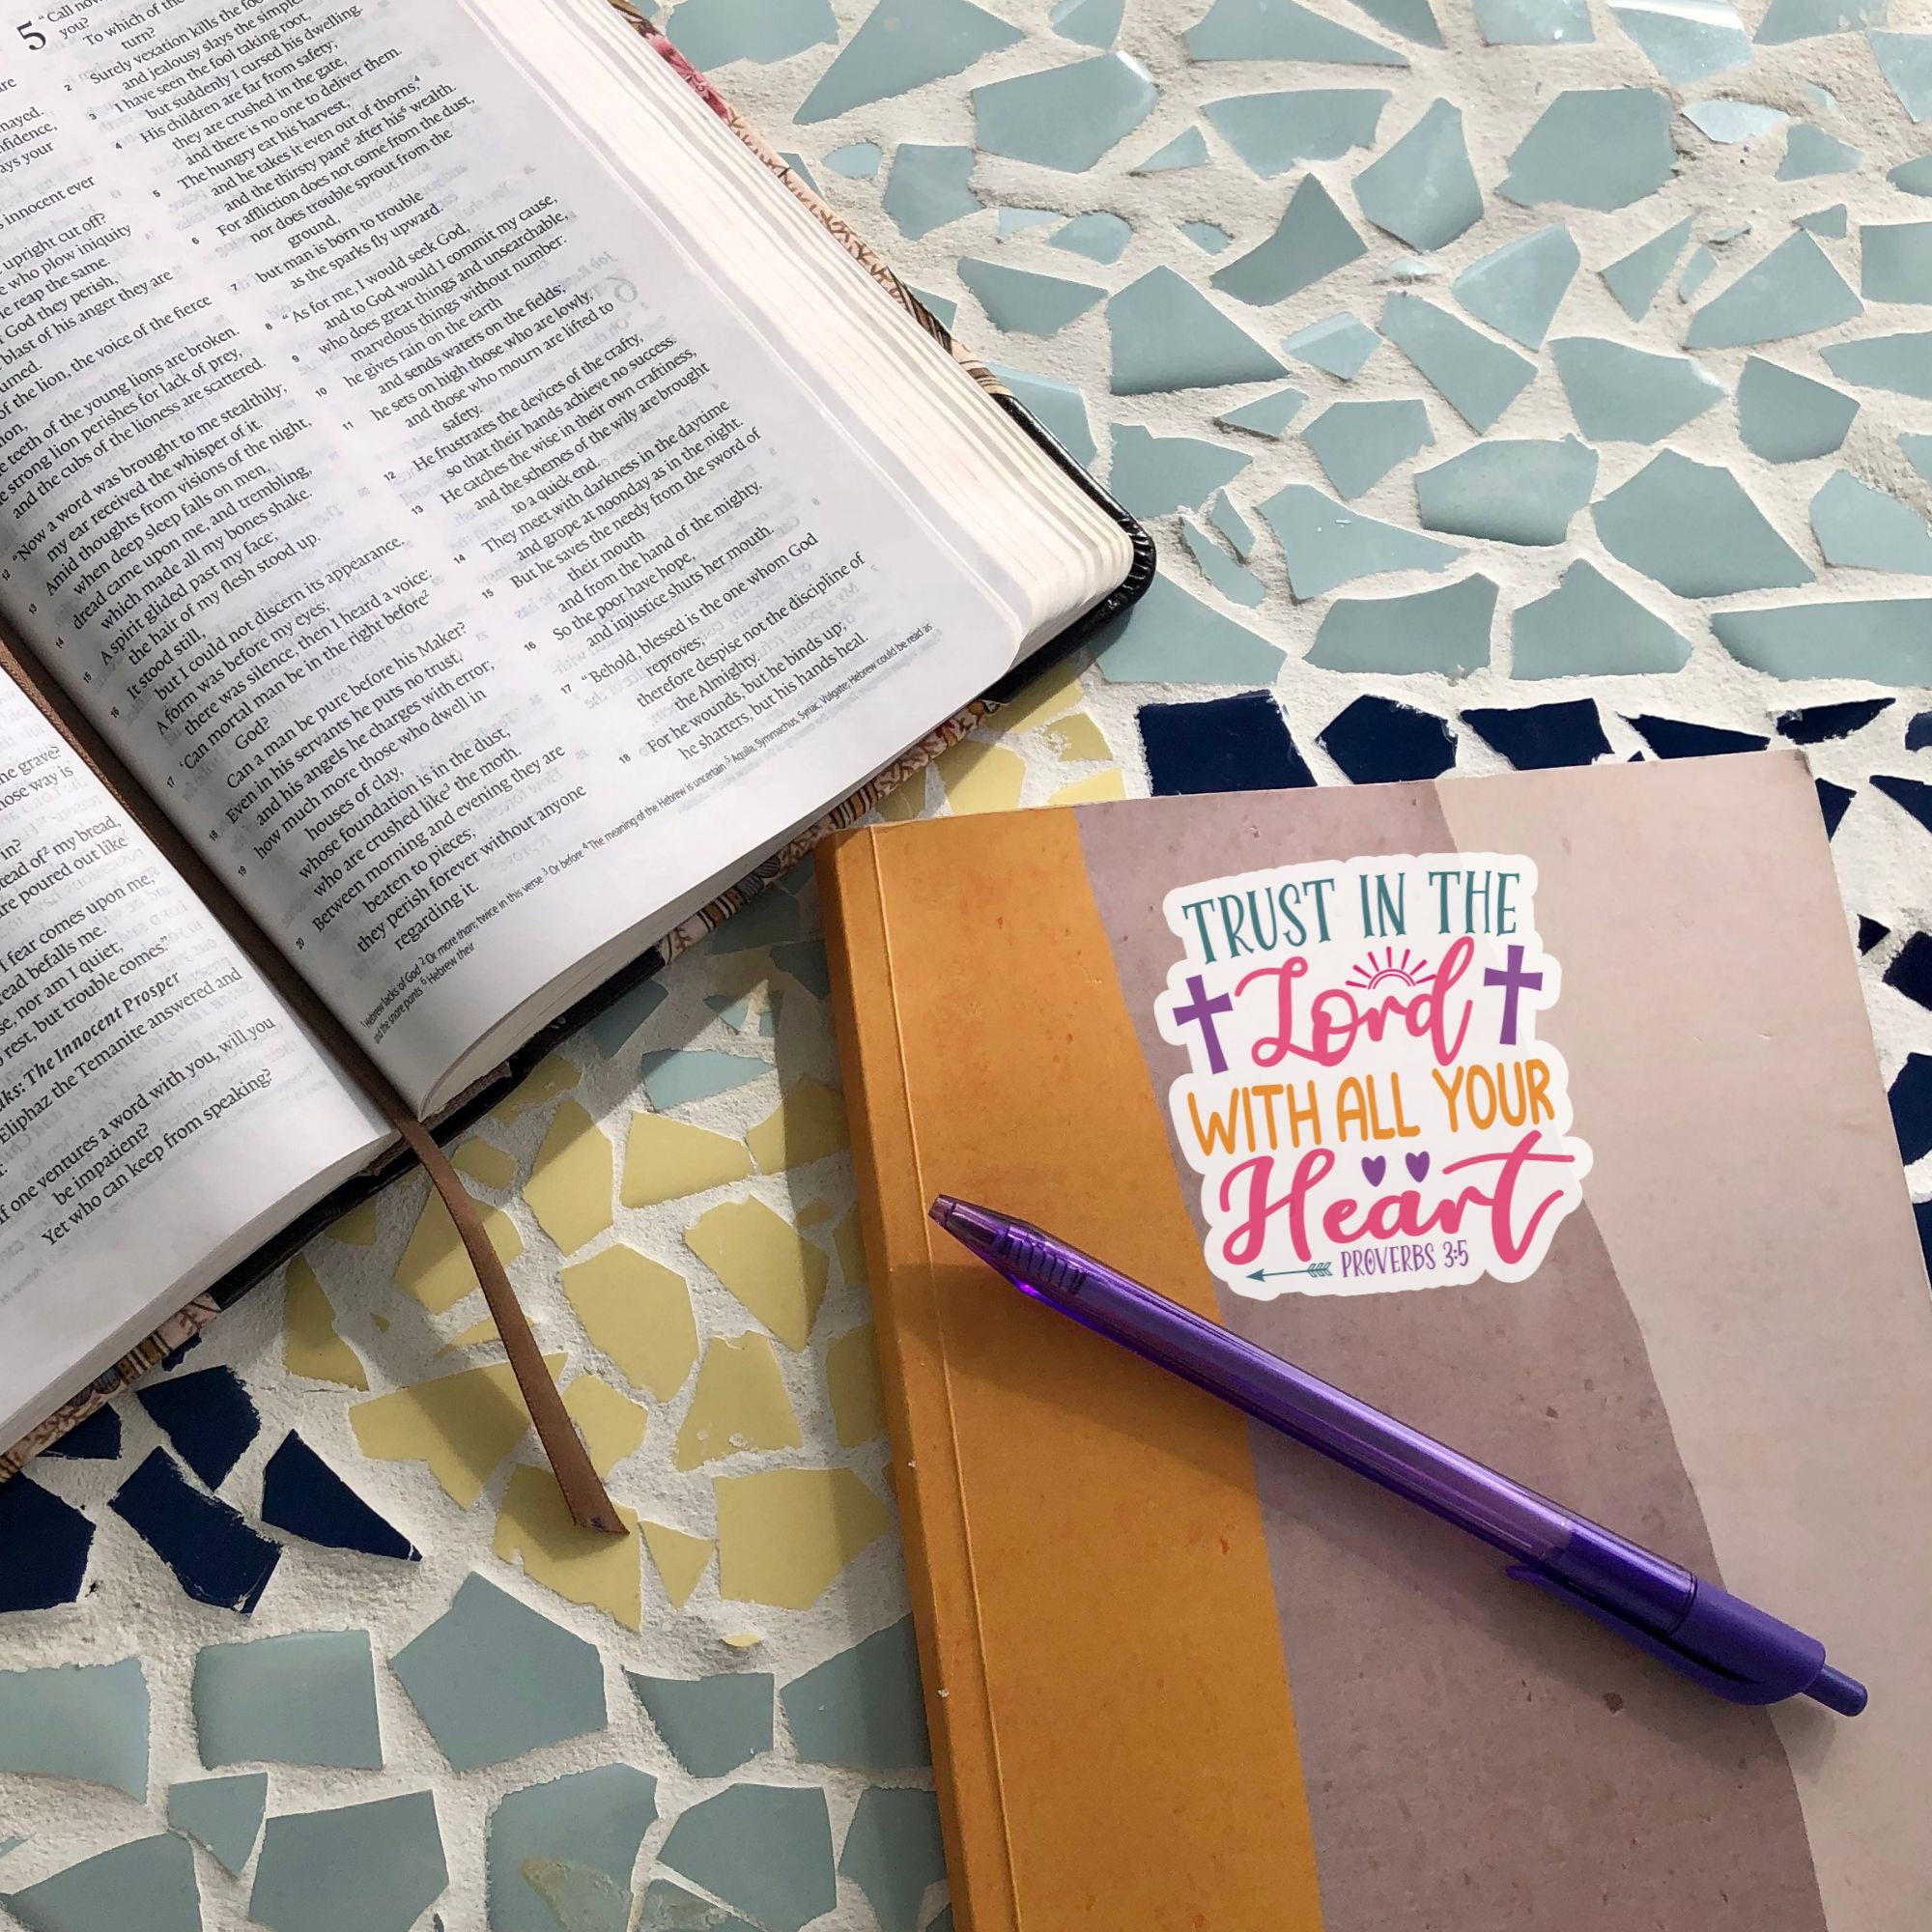 are
mayed.
nfidence,
ays your
innocent ever
upright cut off?
who plow iniquity
e reap the same.
God they perish,
blast of his anger they are
umed.
of the lion, the voice of the fierce
ion,
e teeth of the young lions are broken.
e strong lion perishes for lack of prey,
and the cubs of the lioness are scattered.
12 "Now a word was brought to me stealthily;
my ear received the whisper of it.
13 Amid thoughts from visions of the night,
when deep sleep falls on men,
14 dread came upon me, and trembling,
which made all my bones shake.
15 A spirit glided past my face;
the hair of my flesh stood up.
16 It stood still,
but I could not discern its appearance.
A form was before my eyes;
there was silence, then I heard a voice:
17 'Can mortal man be in the right before²
God?
Can a man be pure before his Maker?
18 Even in his servants he puts no trust,
and his angels he charges with error;
19 how much more those who dwell in
houses of clay,
whose foundation is in the dust,
who are crushed like³ the moth.
20 Between morning and evening they are
beaten to pieces;
they perish forever without anyone
regarding it.
5 "Call now
you?
To which of the
turn?
2 Surely vexation kills the foo
and jealousy slays the simple.
3 I have seen the fool taking root,
but suddenly I cursed his dwelling.
4 His children are far from safety;
they are crushed in the gate,
and there is no one to deliver them.
5 The hungry eat his harvest,
and he takes it even out of thorns,⁴
and the thirsty pant⁵ after his⁶ wealth.
6 For affliction does not come from the dust,
nor does trouble sprout from the
ground,
7 but man is born to trouble
as the sparks fly upward.
8 "As for me, I would seek God,
and to God would I commit my cause,
9 who does great things and unsearchable,
marvelous things without number:
10 he gives rain on the earth
and sends waters on the fields;
11 he sets on high those who are lowly,
and those who mourn are lifted to
safety.
12 He frustrates the devices of the crafty,
so that their hands achieve no success.
13 He catches the wise in their own craftiness,
and the schemes of the wily are brought
to a quick end.
14 They meet with darkness in the daytime
and grope at noonday as in the night.
15 But he saves the needy from the sword of
their mouth
and from the hand of the mighty.
16 So the poor have hope,
and injustice shuts her mouth.
17 "Behold, blessed is the one whom God
reproves;
therefore despise not the discipline of
the Almighty.
18 For he wounds, but he binds up;
he shatters, but his hands heal.
¹ Hebrew lacks of God ² Or more than; twice in this verse ³ Or before ⁴ The meaning of the Hebrew is uncertain ⁵ Aquila, Symmachus, Syriac, Vulgate; Hebrew could be read as
and the snare pants ⁶ Hebrew their
he grave?
hose way is
in?
tead of² my bread,
are poured out like
I fear comes upon me,
read befalls me.
se, nor am I quiet;
rest, but trouble comes."
lks: The Innocent Prosper
Eliphaz the Temanite answered and
:
if one ventures a word with you, will you
be impatient?
Yet who can keep from speaking?
TRUST IN THE
Lord
WITH ALL YOUR
Heart
PROVERBS 3:5